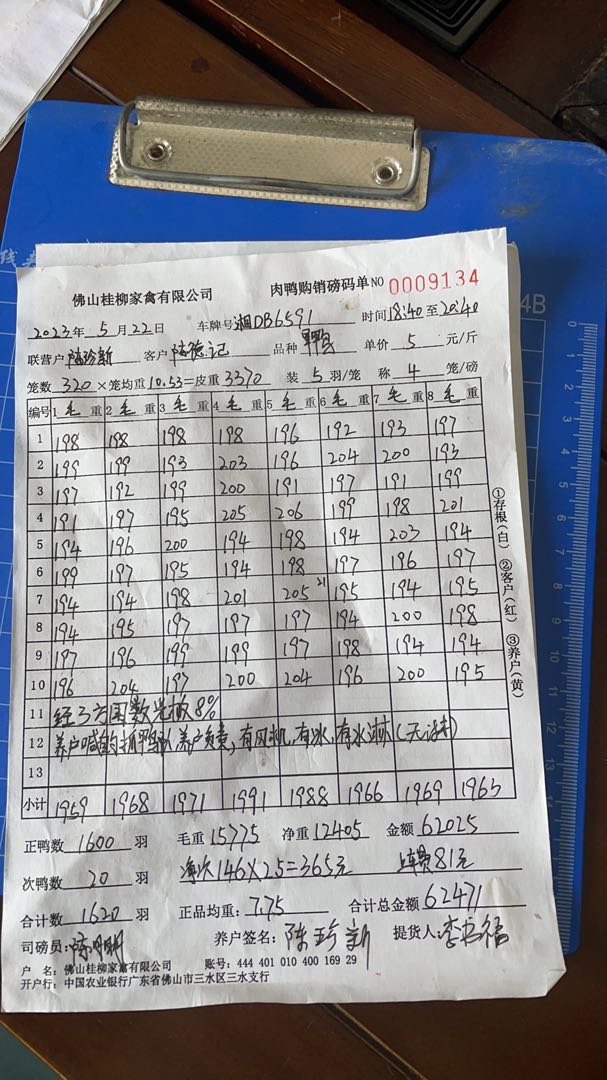 佛山桂柳家禽有限公司 肉鸭购销磅码单 NO 0009134
2023年 5月 22日 车牌号 湘DB6591 时间 18:40 至 20:40
联营户 客户 陆德记 品种 单价 5 元/斤
笼数 320 ×笼均重 10.53=皮重 3370 装 5 羽/笼 称 4 笼/磅
编号 1 毛 重 2 毛 重 3 毛 重 4 毛 重 5 毛 重 6 毛 重 7 毛 重 8 毛 重
1 198 198 198 198 196 192 193 197
2 199 199 193 203 196 204 200 193
3 197 192 199 200 191 197 191 199
4 191 197 195 205 206 199 198 201
5 194 196 200 194 198 194 203 194
6 199 197 195 194 198 197 196 197
7 194 194 198 201 205 21 195 194 195
8 194 195 197 197 197 194 200 198
9 197 196 199 199 197 198 194 194
10 196 204 197 200 204 196 200 195
11 经三方国数光板8%
12 养户喊的抓鸭队养户负责,有风机,有冰,有水淋
13
小计 1959 1968 1971 1991 1988 1966 1969 1963
正鸭数 1600 羽 毛重 15775 净重 12405 金额 62025
次鸭数 20 羽 146×2.5=365元 81元
合计数 1620 羽 正品均重: 7.75 合计总金额 62471
司磅员: 养户签名: 陈珍新 提货人:
户 名: 佛山桂柳家禽有限公司 账号: 444 401 010 400 169 29
开户行: 中国农业银行广东省佛山市三水区三水支行
①存根(白) ②客户(红) ③养户(黄)
4B
0 1 2 3 4 5 6 7 8 9 10 11 12 13 14 15